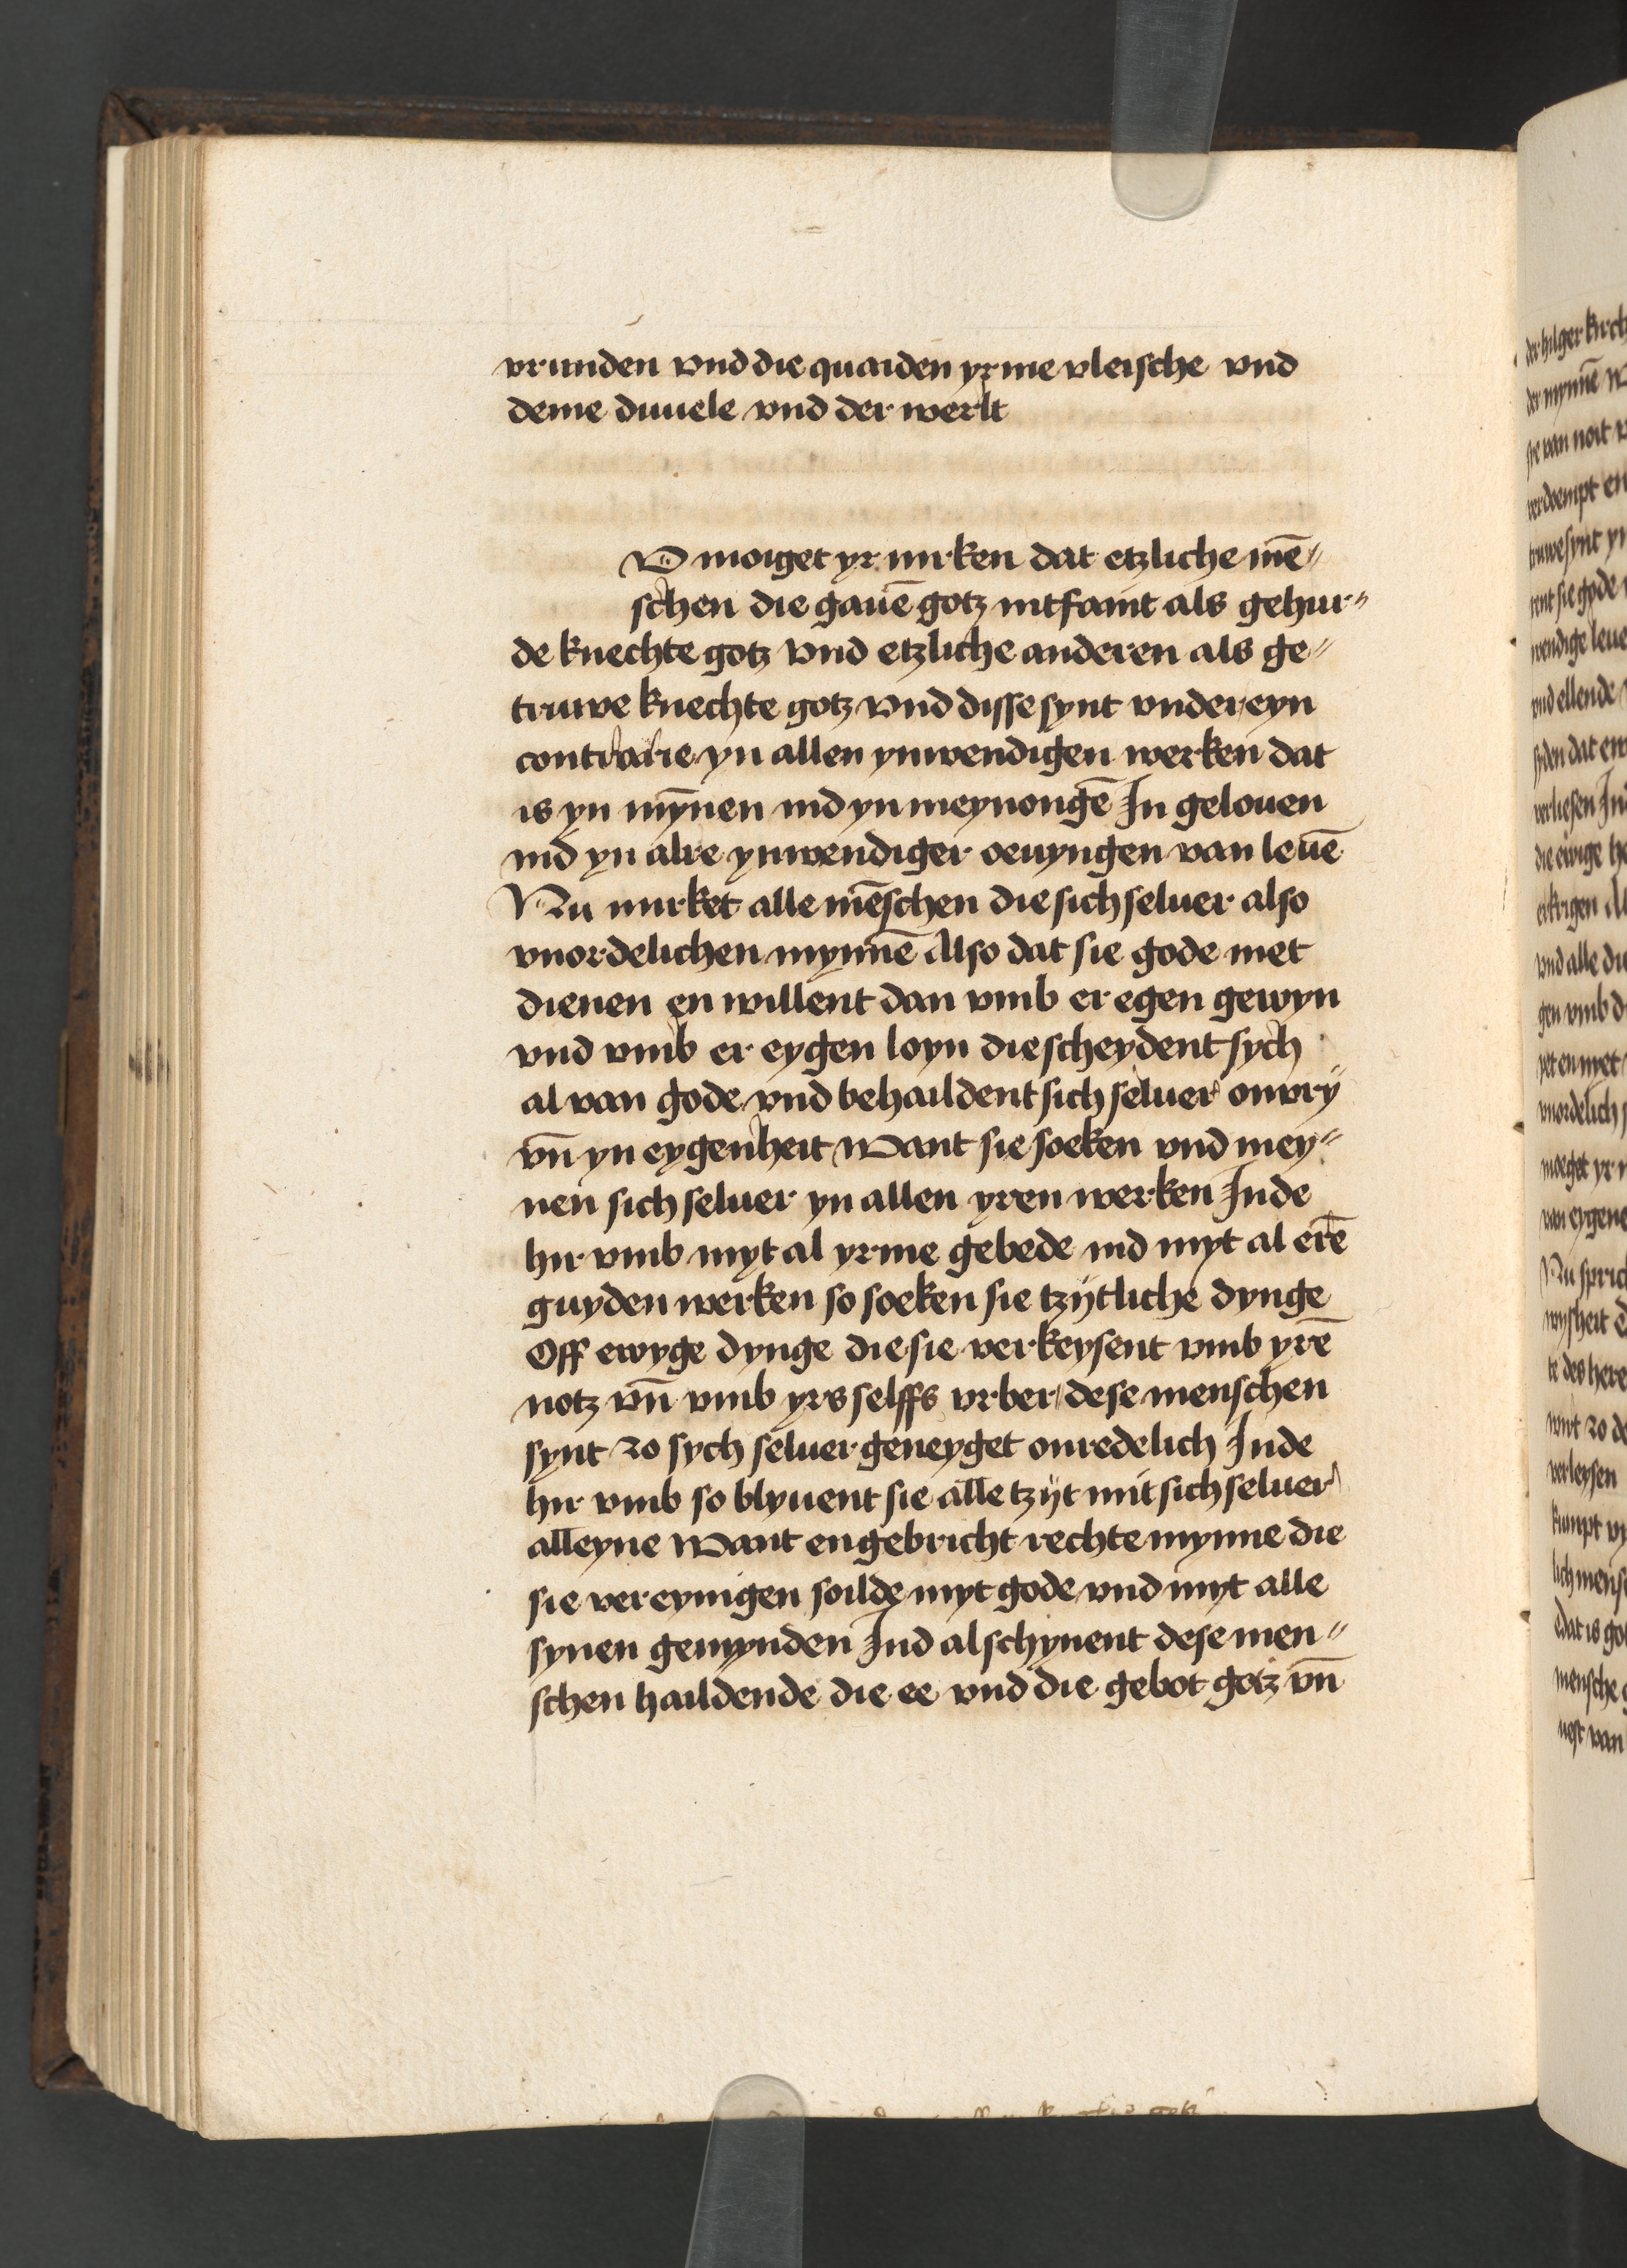 vrunden vnd die quaiden yrme vleische vnd
deme duuele vnd der werlt
V moiget yr mirken dat etzliche mē〃
schen die gauē gotz intfaint als gehur〃
de knechte gotz vnd etzliche anderen als ge〃
truwe knechte gotz vnd disse synt vndereyn
contrarie yn allen ynwendigen werken dat
is yn mȳnen ind yn meynongē In gelouen
ind yn alre ynwendiger oeuyngen van leuē
Nu mirket alle mēschen die sich seluer also
vnordelichen mynnē Also dat sie gode niet
dienen en willent dan vmb er egen gewyn
vnd vmb er eygen loyn die scheydent sych
al van gode vnd behaildent sich seluer onvrÿ
vn̄ yn eygenheit Want sie soeken vnd mey〃
nen sich seluer yn allen yren werken Inde
hir vmb myt al yrme gebede ind myt al erē
guyden werken so soeken sie tzÿtliche dynge
Off ewyge dynge die sie verkeysent vmb yrē
notz vn̄ vmb yrs selffs vrber dese menschen
synt zo sych seluer geneyget onredelich Inde
hir vmb so blyuent sie alle tzÿt mit sich seluer
alleyne Want en gebricht rechte mynne die
sie vereynigen soilde myt gode vnd myt alle
synen gemynden Ind al schynent dese men〃
schen haildende die ee vnd die gebot gotz vn̄